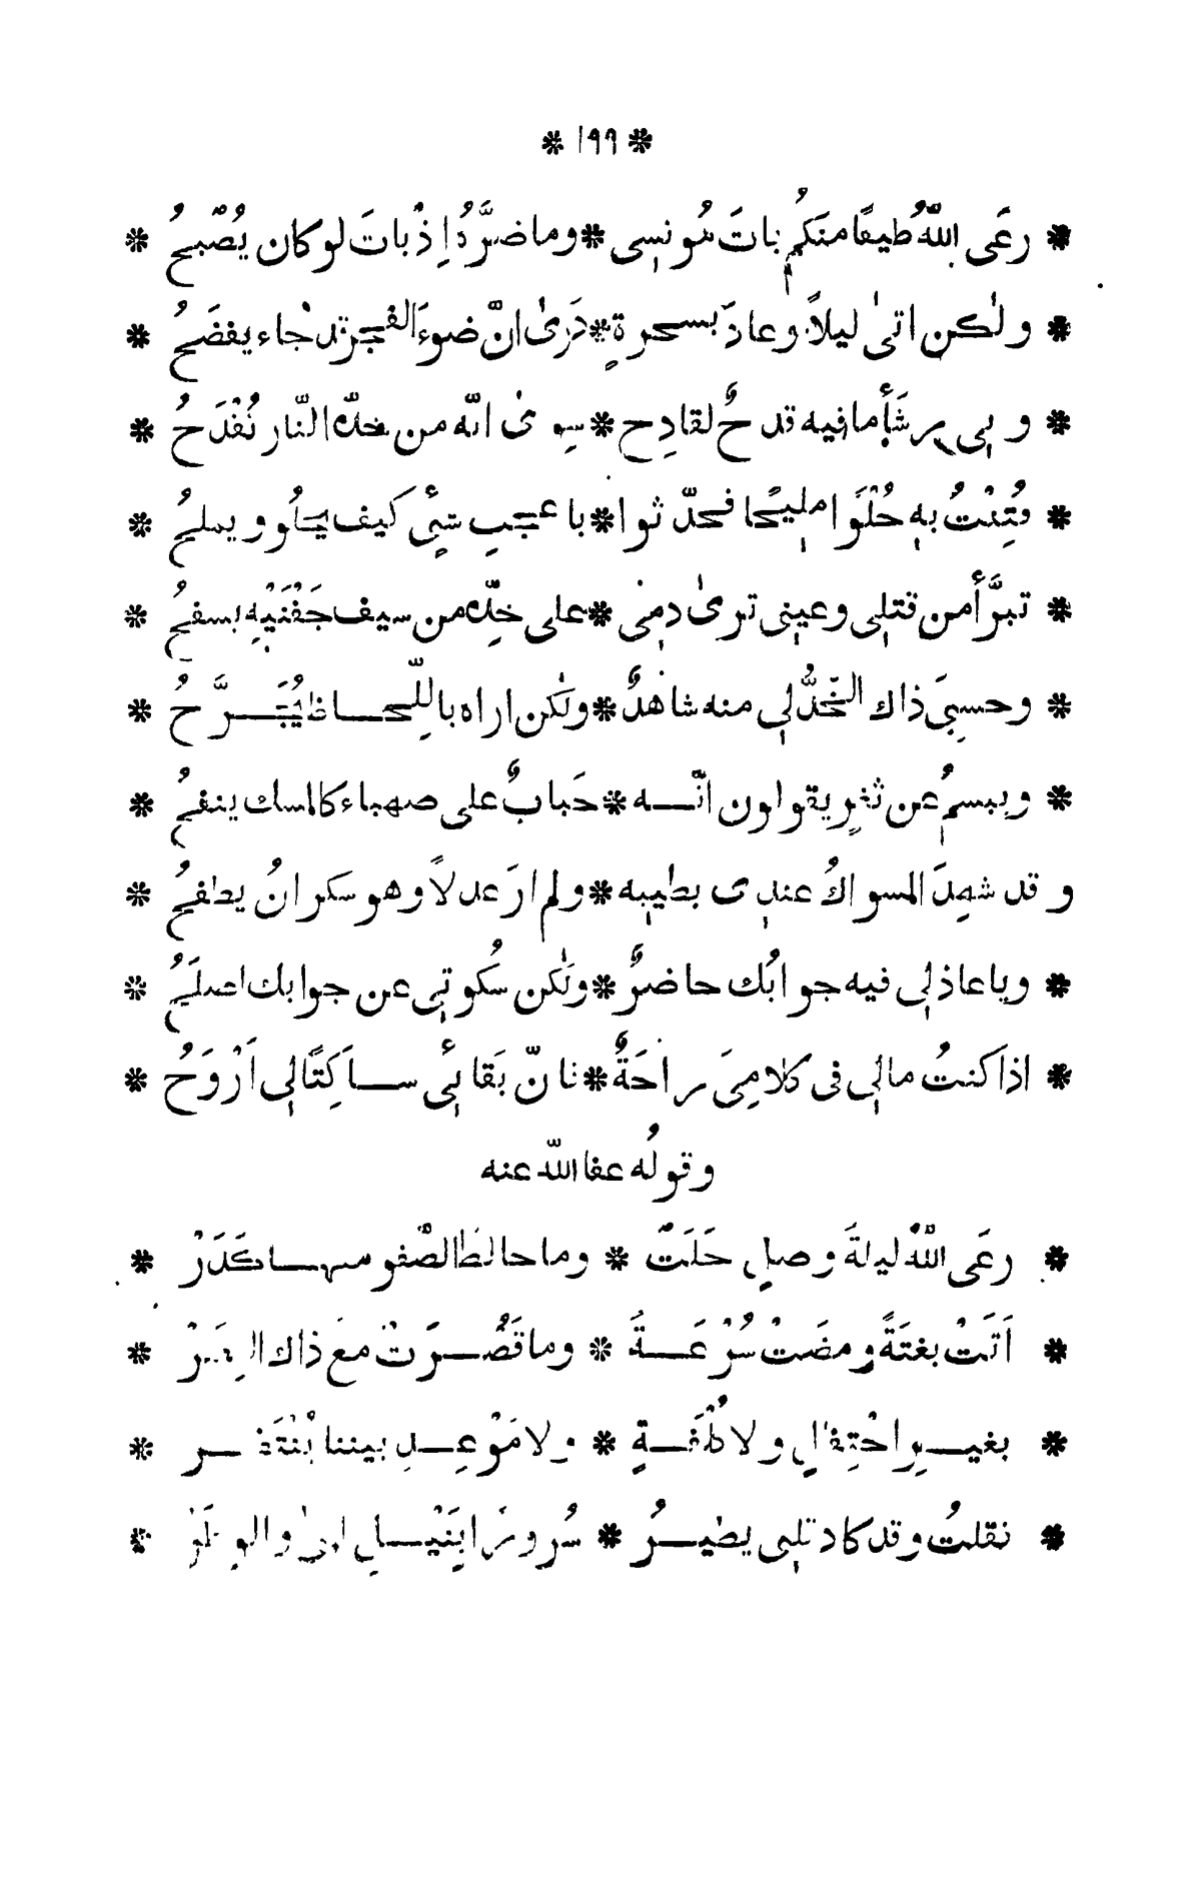 * ١٩٩ *
* رعَى اللّٰهُ طيفًا منكُم باتَ مُونسِى * وما ضرَّهُ اِذْ باتَ لو كان يُصْبحُ *
* ولٰكن اتىٰ ليلاً وعادَ بسحرةٍ * دَرىٰ انَّ ضوءَ الفجر قد جاء يفضَحُ *
* وبى رشَأٌ ما فيه قدحٌ لقادِح * سِوىٰ انّه من خدّه النّار تُقْدَحُ *
* فُتِنْتُ به حُلْوًا مليحًا فحدّثوا * باعجبِ شئٍ كيف يحلُو ويملحُ *
* تبرَّأَ من قتلى وعينى ترىٰ دمى * على خدِّه من سيف جَفْنَيْهِ يسفحُ *
* وحسبِىَ ذاك الخدُّ لى منه شاهدٌ * ولٰكن اراه باللِّحاظ يُجَرَّحُ *
* ويبسمُ عن ثغرٍ يقولون انّه * حَبابٌ على صهباء كالمسك ينفحُ *
وقد شهِدَ المسواكُ عندى بطيبه * ولم ارَ عدلاً وهو سكرانُ يطفحُ *
* ويا عاذلى فيه جوابُك حاضرٌ * ولٰكن سُكوتى عن جوابك اصلَحُ *
* اذا كنتُ مالى فى كلامِىَ راحَةٌ * فانّ بَقائى ساكِتًا لى اَرْوَحُ *
وقولُه عفا اللّٰه عنه
* رعَى اللّٰهُ ليلةَ وصلٍ خَلَتْ * وما خالطَ الصّفو منها كَدَرْ *
* اَتَتْ بغتَةً ومضَتْ سُرْعَةً * وما قَصَّرَتْ مَعَ ذاك *
* بغيرِ احْتِفالٍ ولا كُلْفَةٍ * ولا مَوْعِدٍ بيننا يُنْتَظَر
* فقلتُ وقد كاد قلبى يطيرُ * سُرورًا بِنَيْلِ *